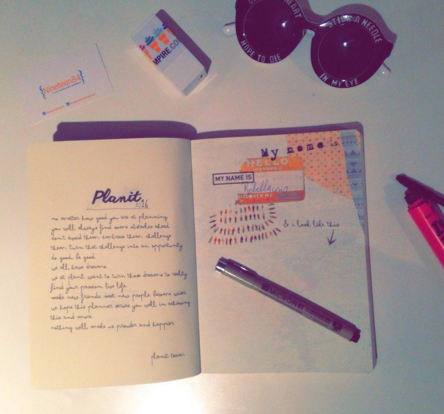 CROSS MY HEART
HOPE TO DIE
STICK A NEEDLE
IN MY EYE
MPIRE.CO
Planit
no matter how good you are at planning
you will always find some obstacles
don't avoid them, embrace them, challenge
them. turn that challenge into an opportunity
do good. be good
we all have dreams
we at planit want to turn those dreams to reality
find your passion. live life.
make new friends. meet new people. become
we hope this planner serves you well in achieving
this and more
nothing will make us prouder and happier
planit team
My name is
HELLO
MY NAME IS
& i look like this